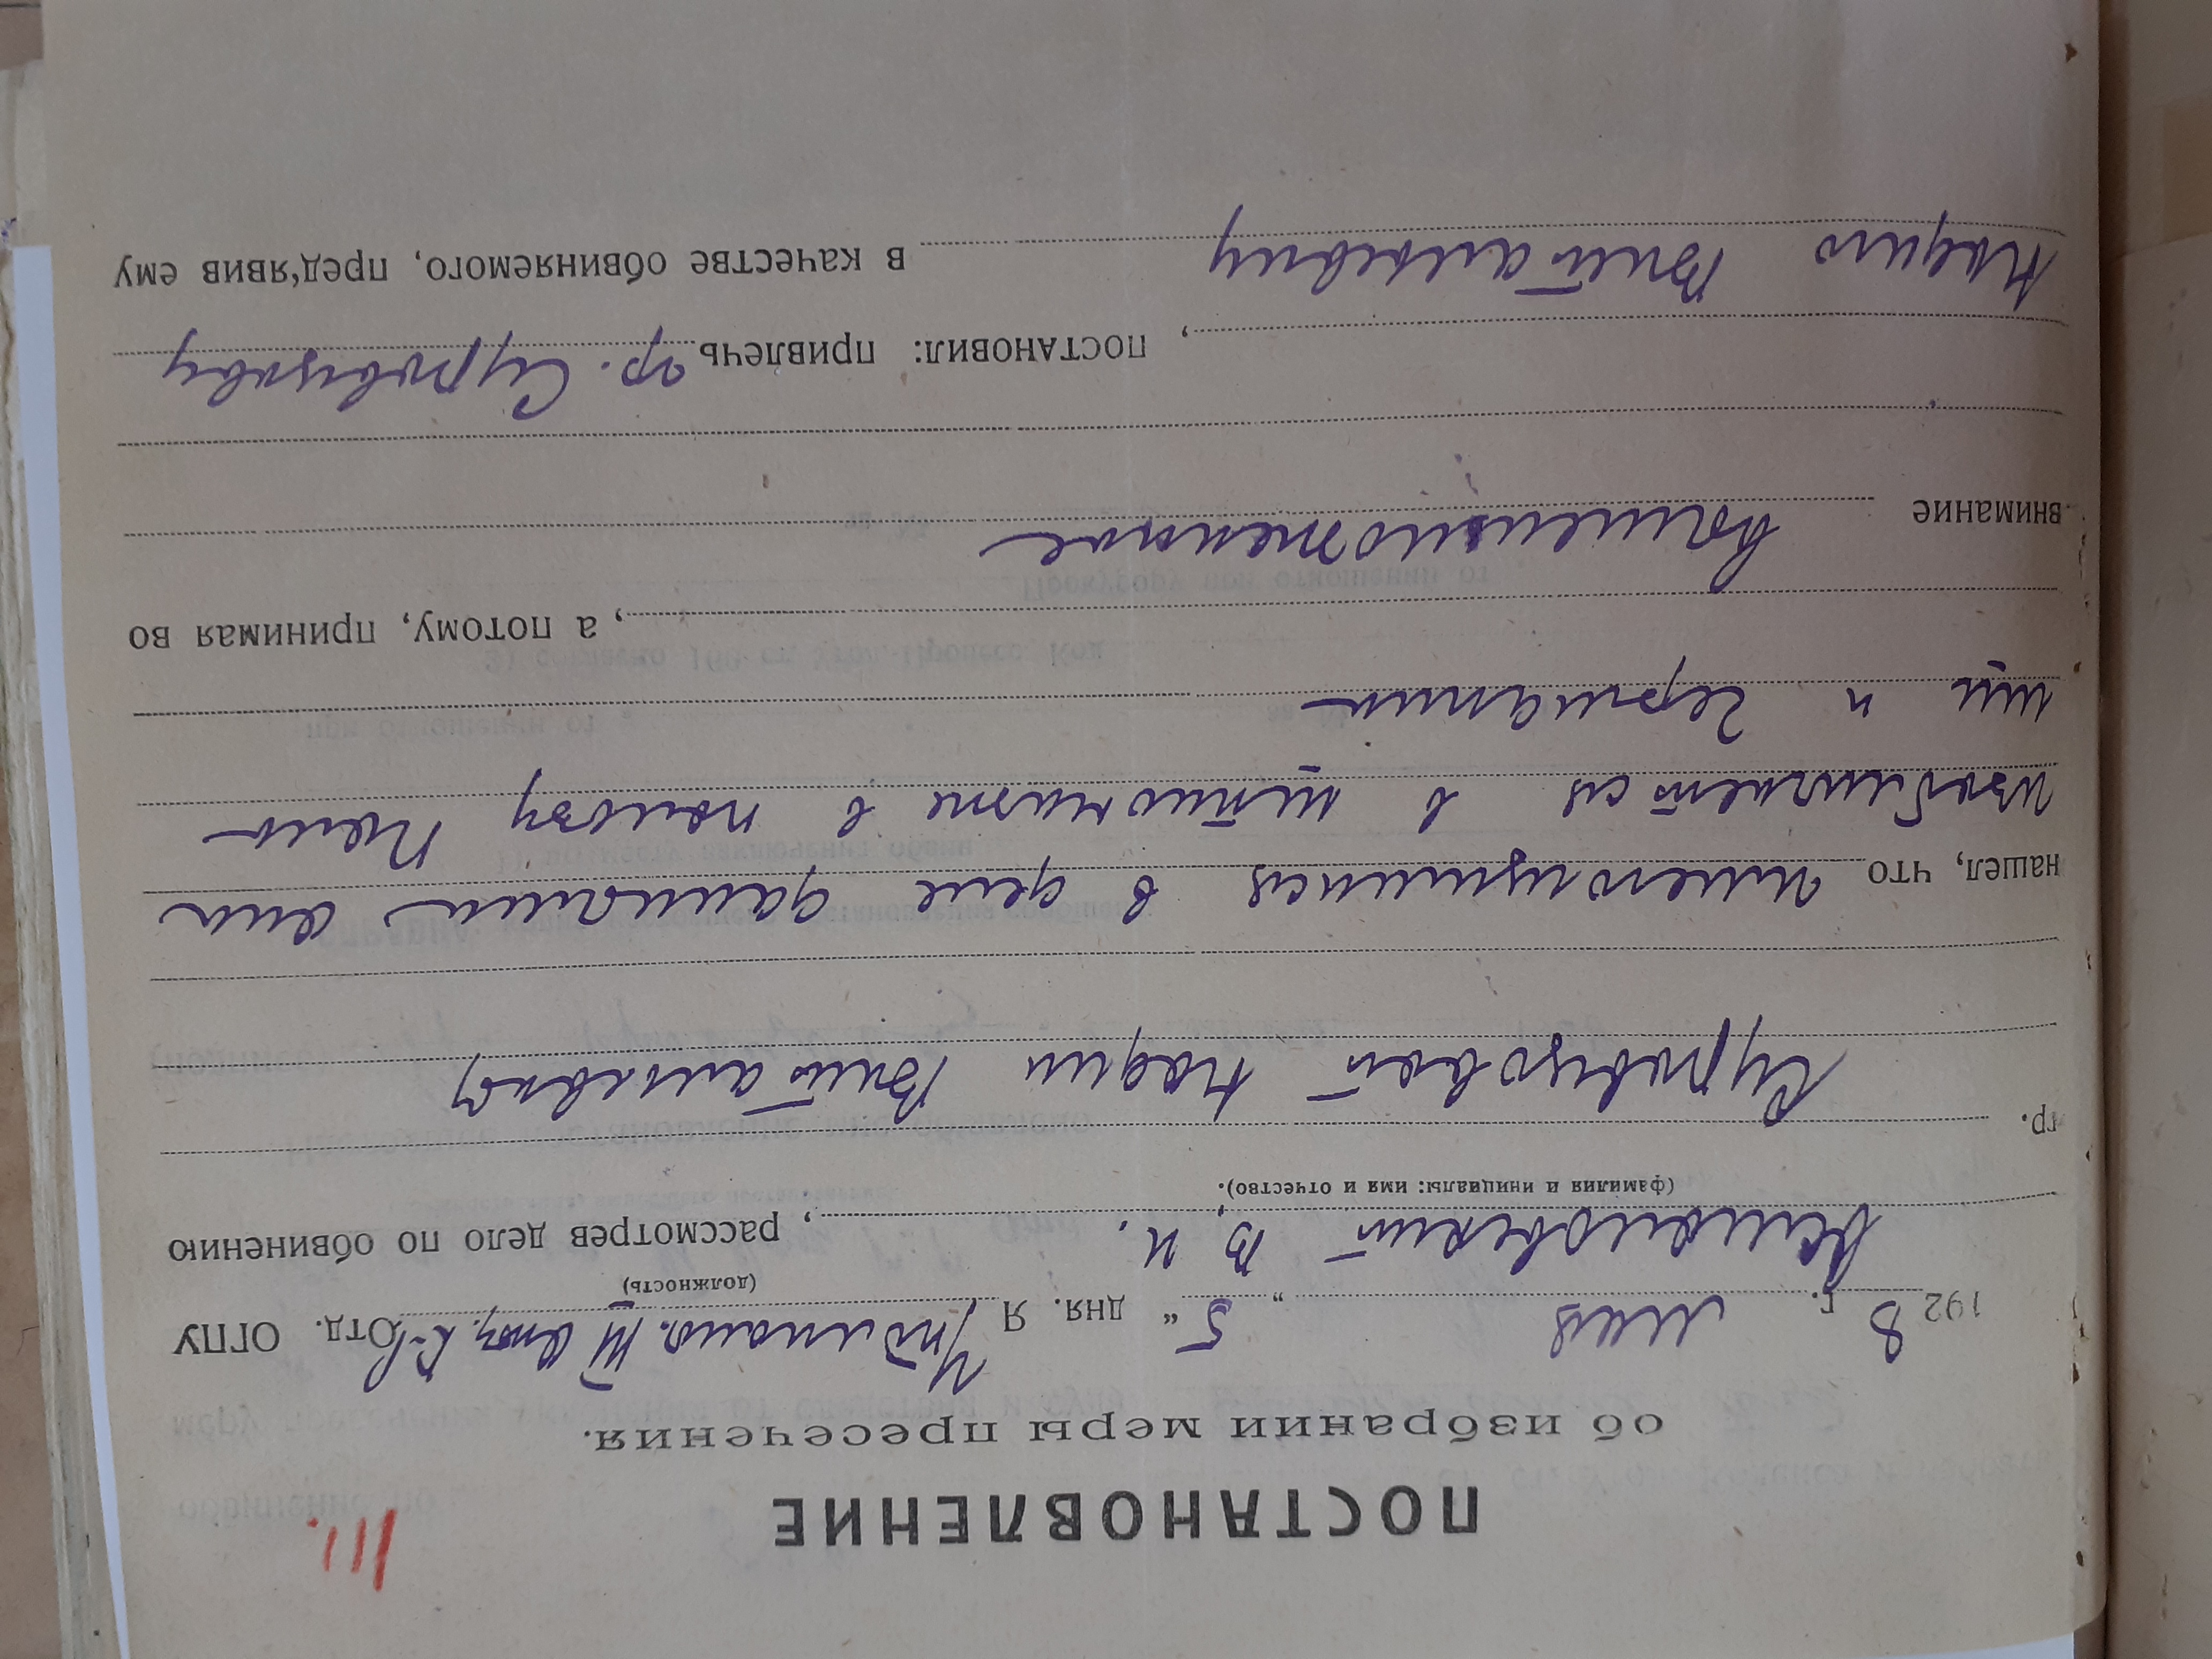 111.
ПОСТАНОВЛЕНИЕ
об избрании меры пресечения.
1928 г. мая „ 5 “ дня. Я Уполном. III Отд. К-Р. Отд. ОГПУ
(должность)
В. И. , рассмотрев дело по обвинению
(фамилия и инициалы: имя и отчество).
гр. Суровцовой Надии Витальевны
нашел, что имеющимися в деле данными она
изобличается в шпионаже в пользу Поль
ши и Германии
, а потому, принимая во
внимание вышеизложенное
, ПОСТАНОВИЛ: привлечь гр. Суровцову
Надию Витальевну в качестве обвиняемого, пред'явив ему